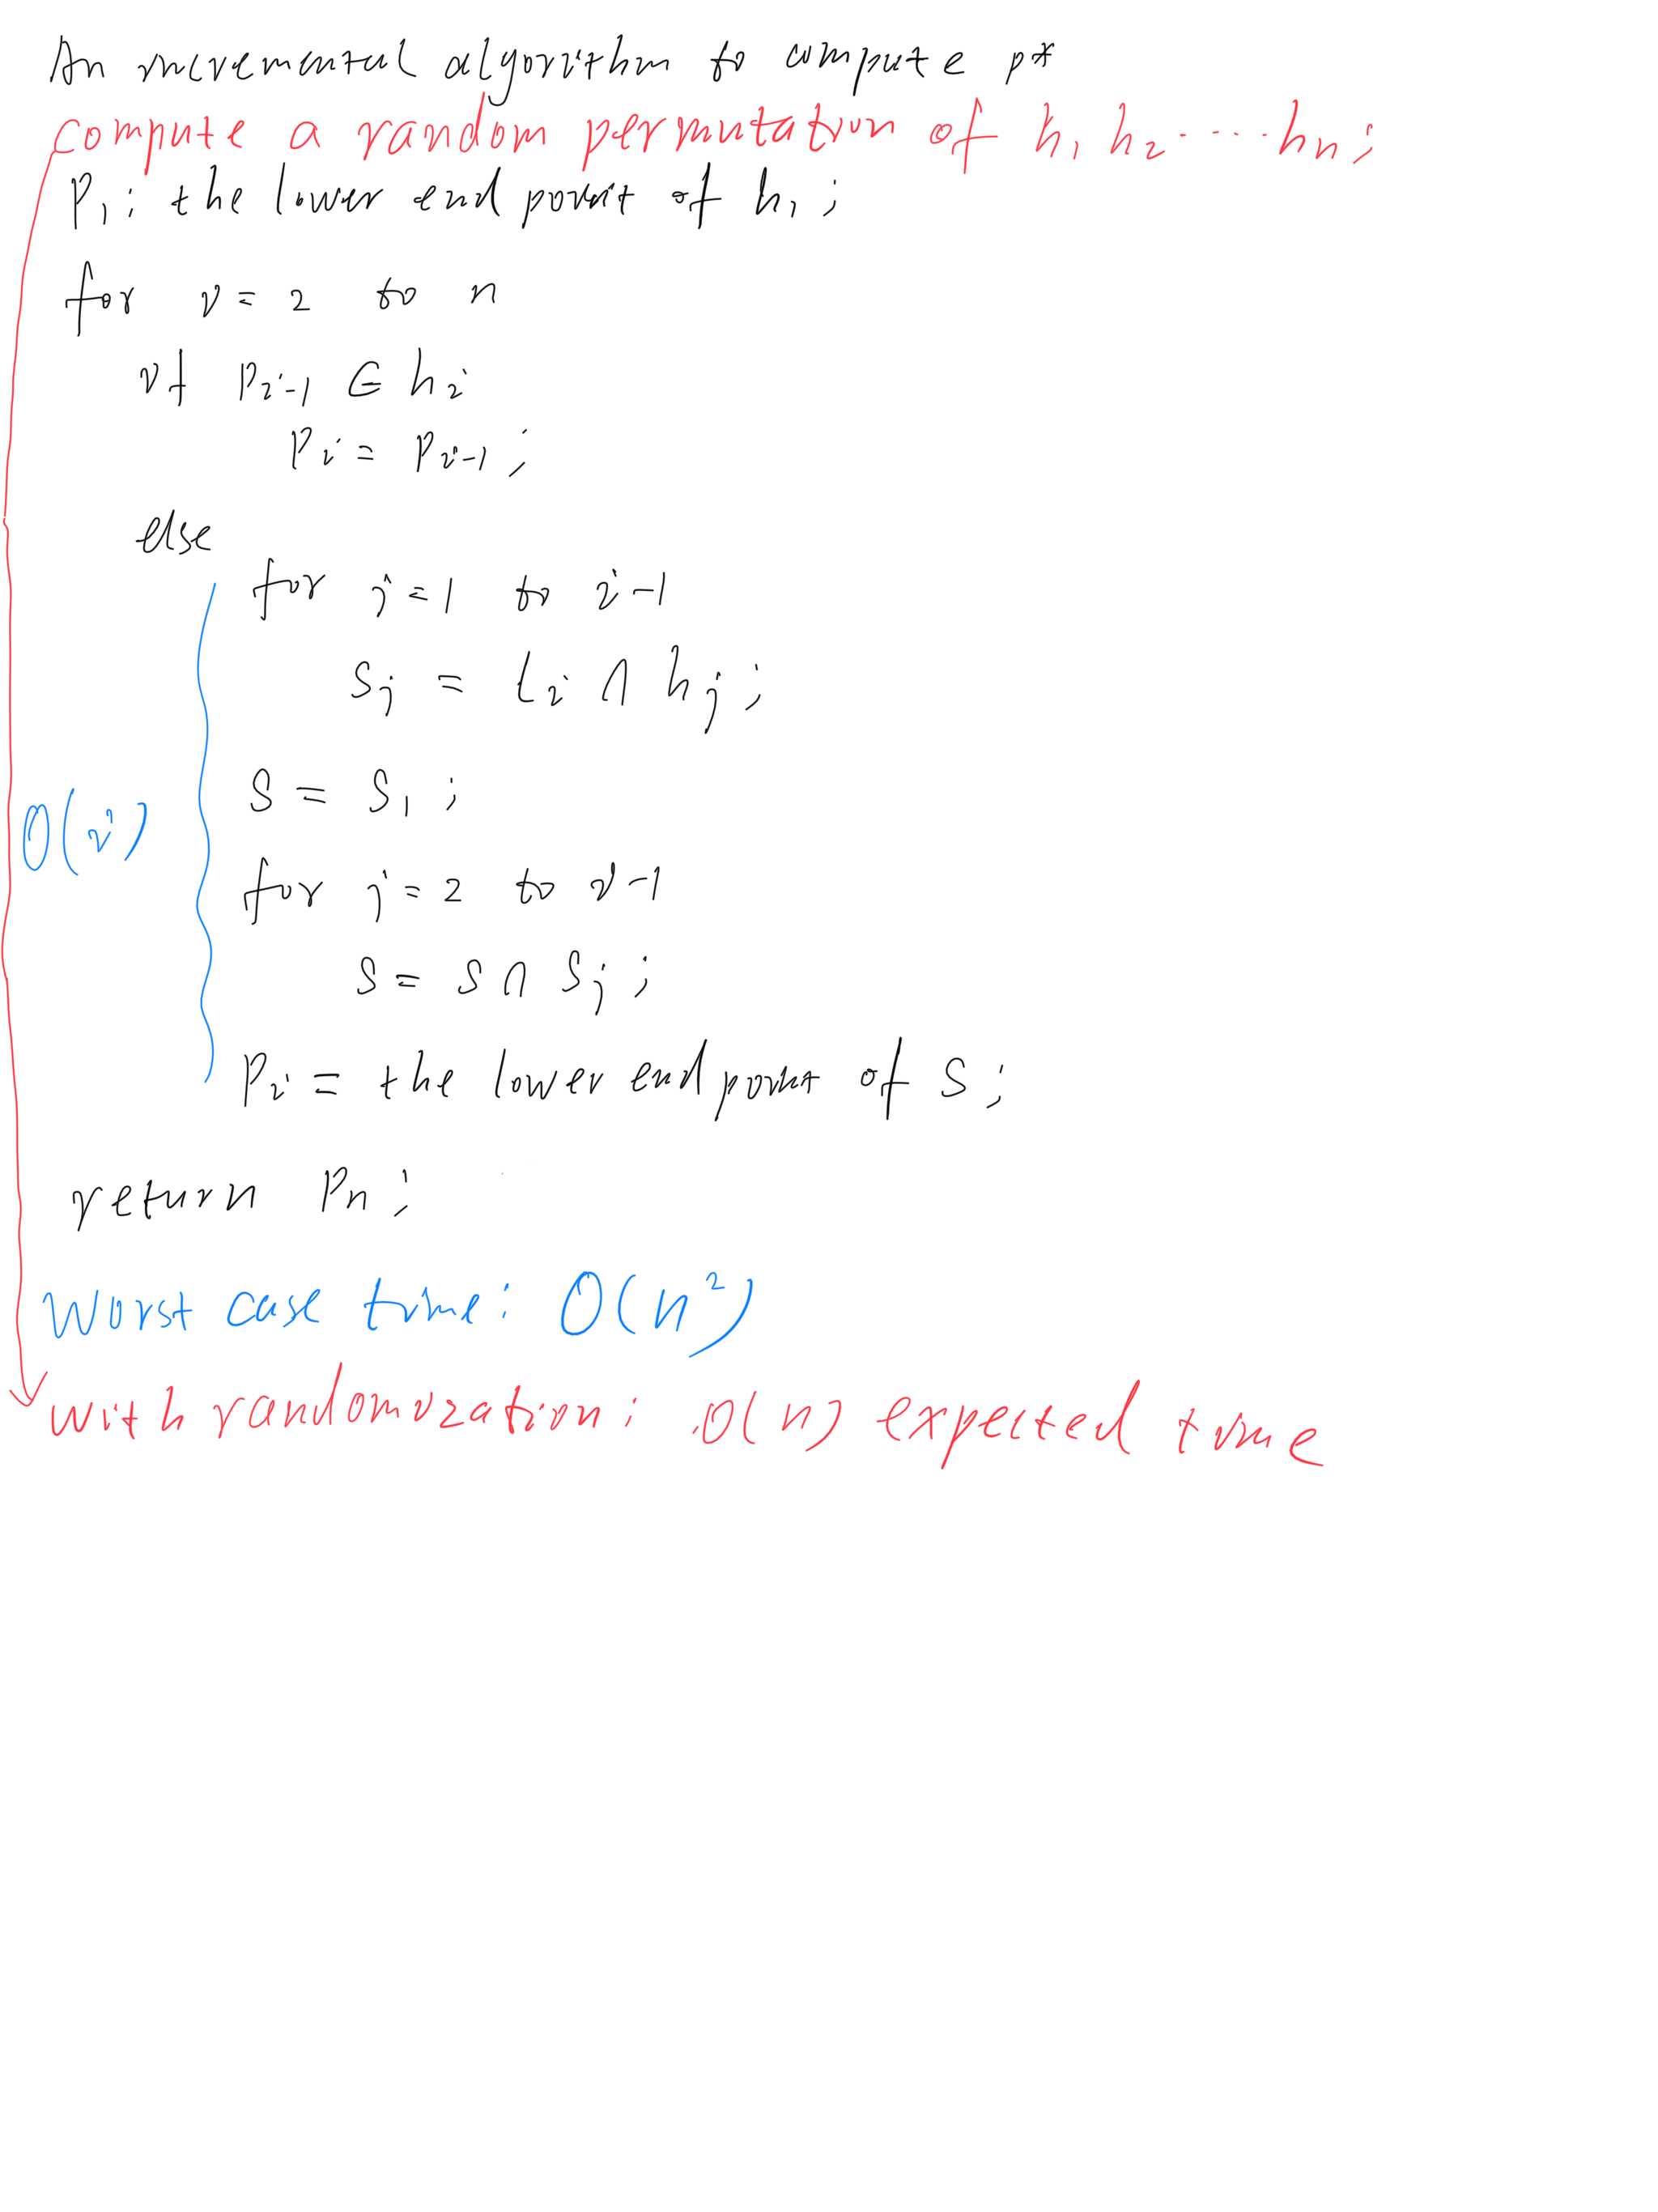 An incremental algorithm to compute p*
compute a random permutation of h₁ h₂ ..... hₙ;
P₁: the lower endpoint of h₁;
for i = 2 to n
if Pᵢ₋₁ ∈ hᵢ
Pᵢ = Pᵢ₋₁;
else
for j = 1 to i-1
Sⱼ = lᵢ ∩ hⱼ;
S = S₁;
O(i)
for j = 2 to i-1
S = S ∩ Sⱼ;
Pᵢ = the lower endpoint of S;
return Pₙ;
Worst case time: O(n²)
with randomization: O(n) expected time